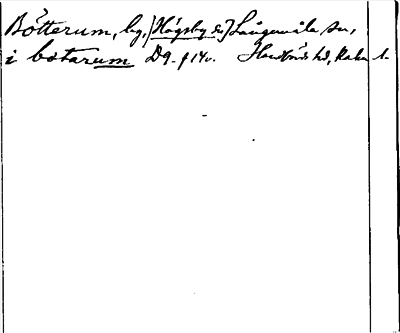 Bötterum, by, [Högsby sn] Långemåla sn,
i botarum D9 f 14v. Handbörds hd, Kalm. l.